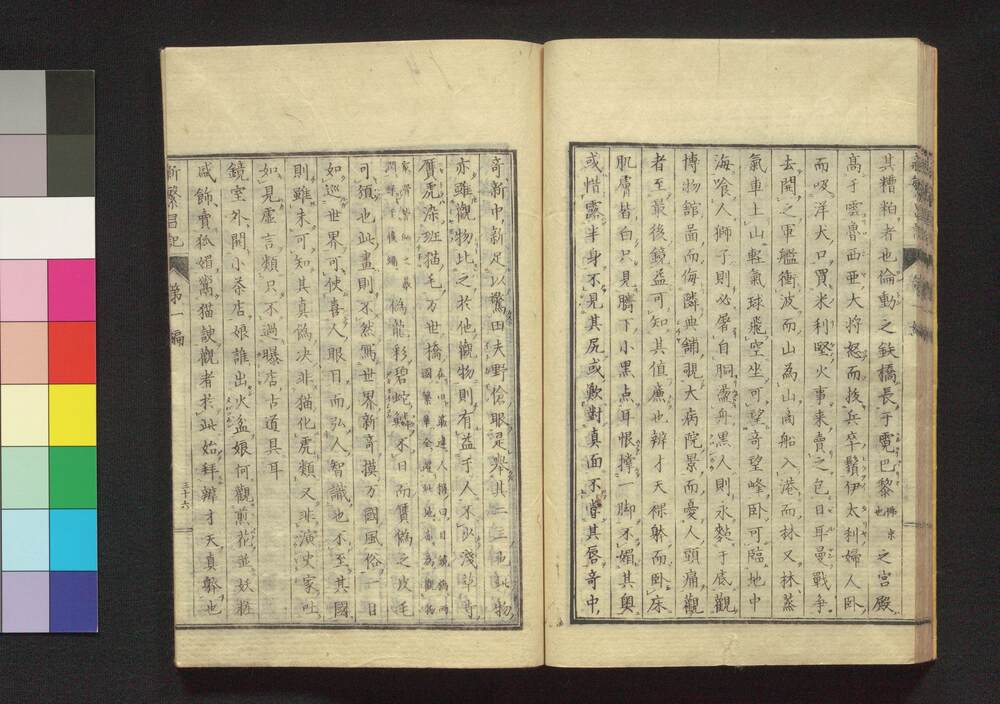 其糟粕者也倫動之鉄橋長于霓巴黎佛京也之宮殿
高于雲魯西亜大将怒而拔兵卒鬚伊太利婦人臥
而吸洋犬口買米利堅火事来賣之包日耳曼戰争
去閲之軍艦衝波而山為山商船入港而林又林蒸
氣車上山輕氣球飛空坐可望奇望峰臥可臨地中
海喰人獅子則必
黑人則氷
於底觀
博物舘畐而侮隣典舖覗大病院景而憂人頭痛觀
者至最後鏡益可知其值廉也辨才天裸躰而臥床
肌膚皆白只見臍下小黑点耳恨擡一脚不媚其奥
或惜露半身不見其尻或歎對真面不甞其唇奇中
奇新中新足以驚田夫野愴眼是舉其二三耳此物
亦雖觀物比之於他觀物則有益于人不少淺草寺
贋虎染班猫毛万世橋
偽龍彩碧蛇鱗不日而贋偽之皮毛
可須也此畫則不然寫世界新奇摸万國風俗一日
如巡世界可使喜人眼目而弘人智識也不至其國
則雖未可知其真偽决非猫化虎類又非演史家吐
如見虚言類只不過曝店古道具耳
鏡室外開小茶店娘誰出火盆娘何觀煎花並妖粧
盛飾賣狐媚鬻猫諛觀者於此始拜辨才天真躰也
新繁昌記
第一編
三十六